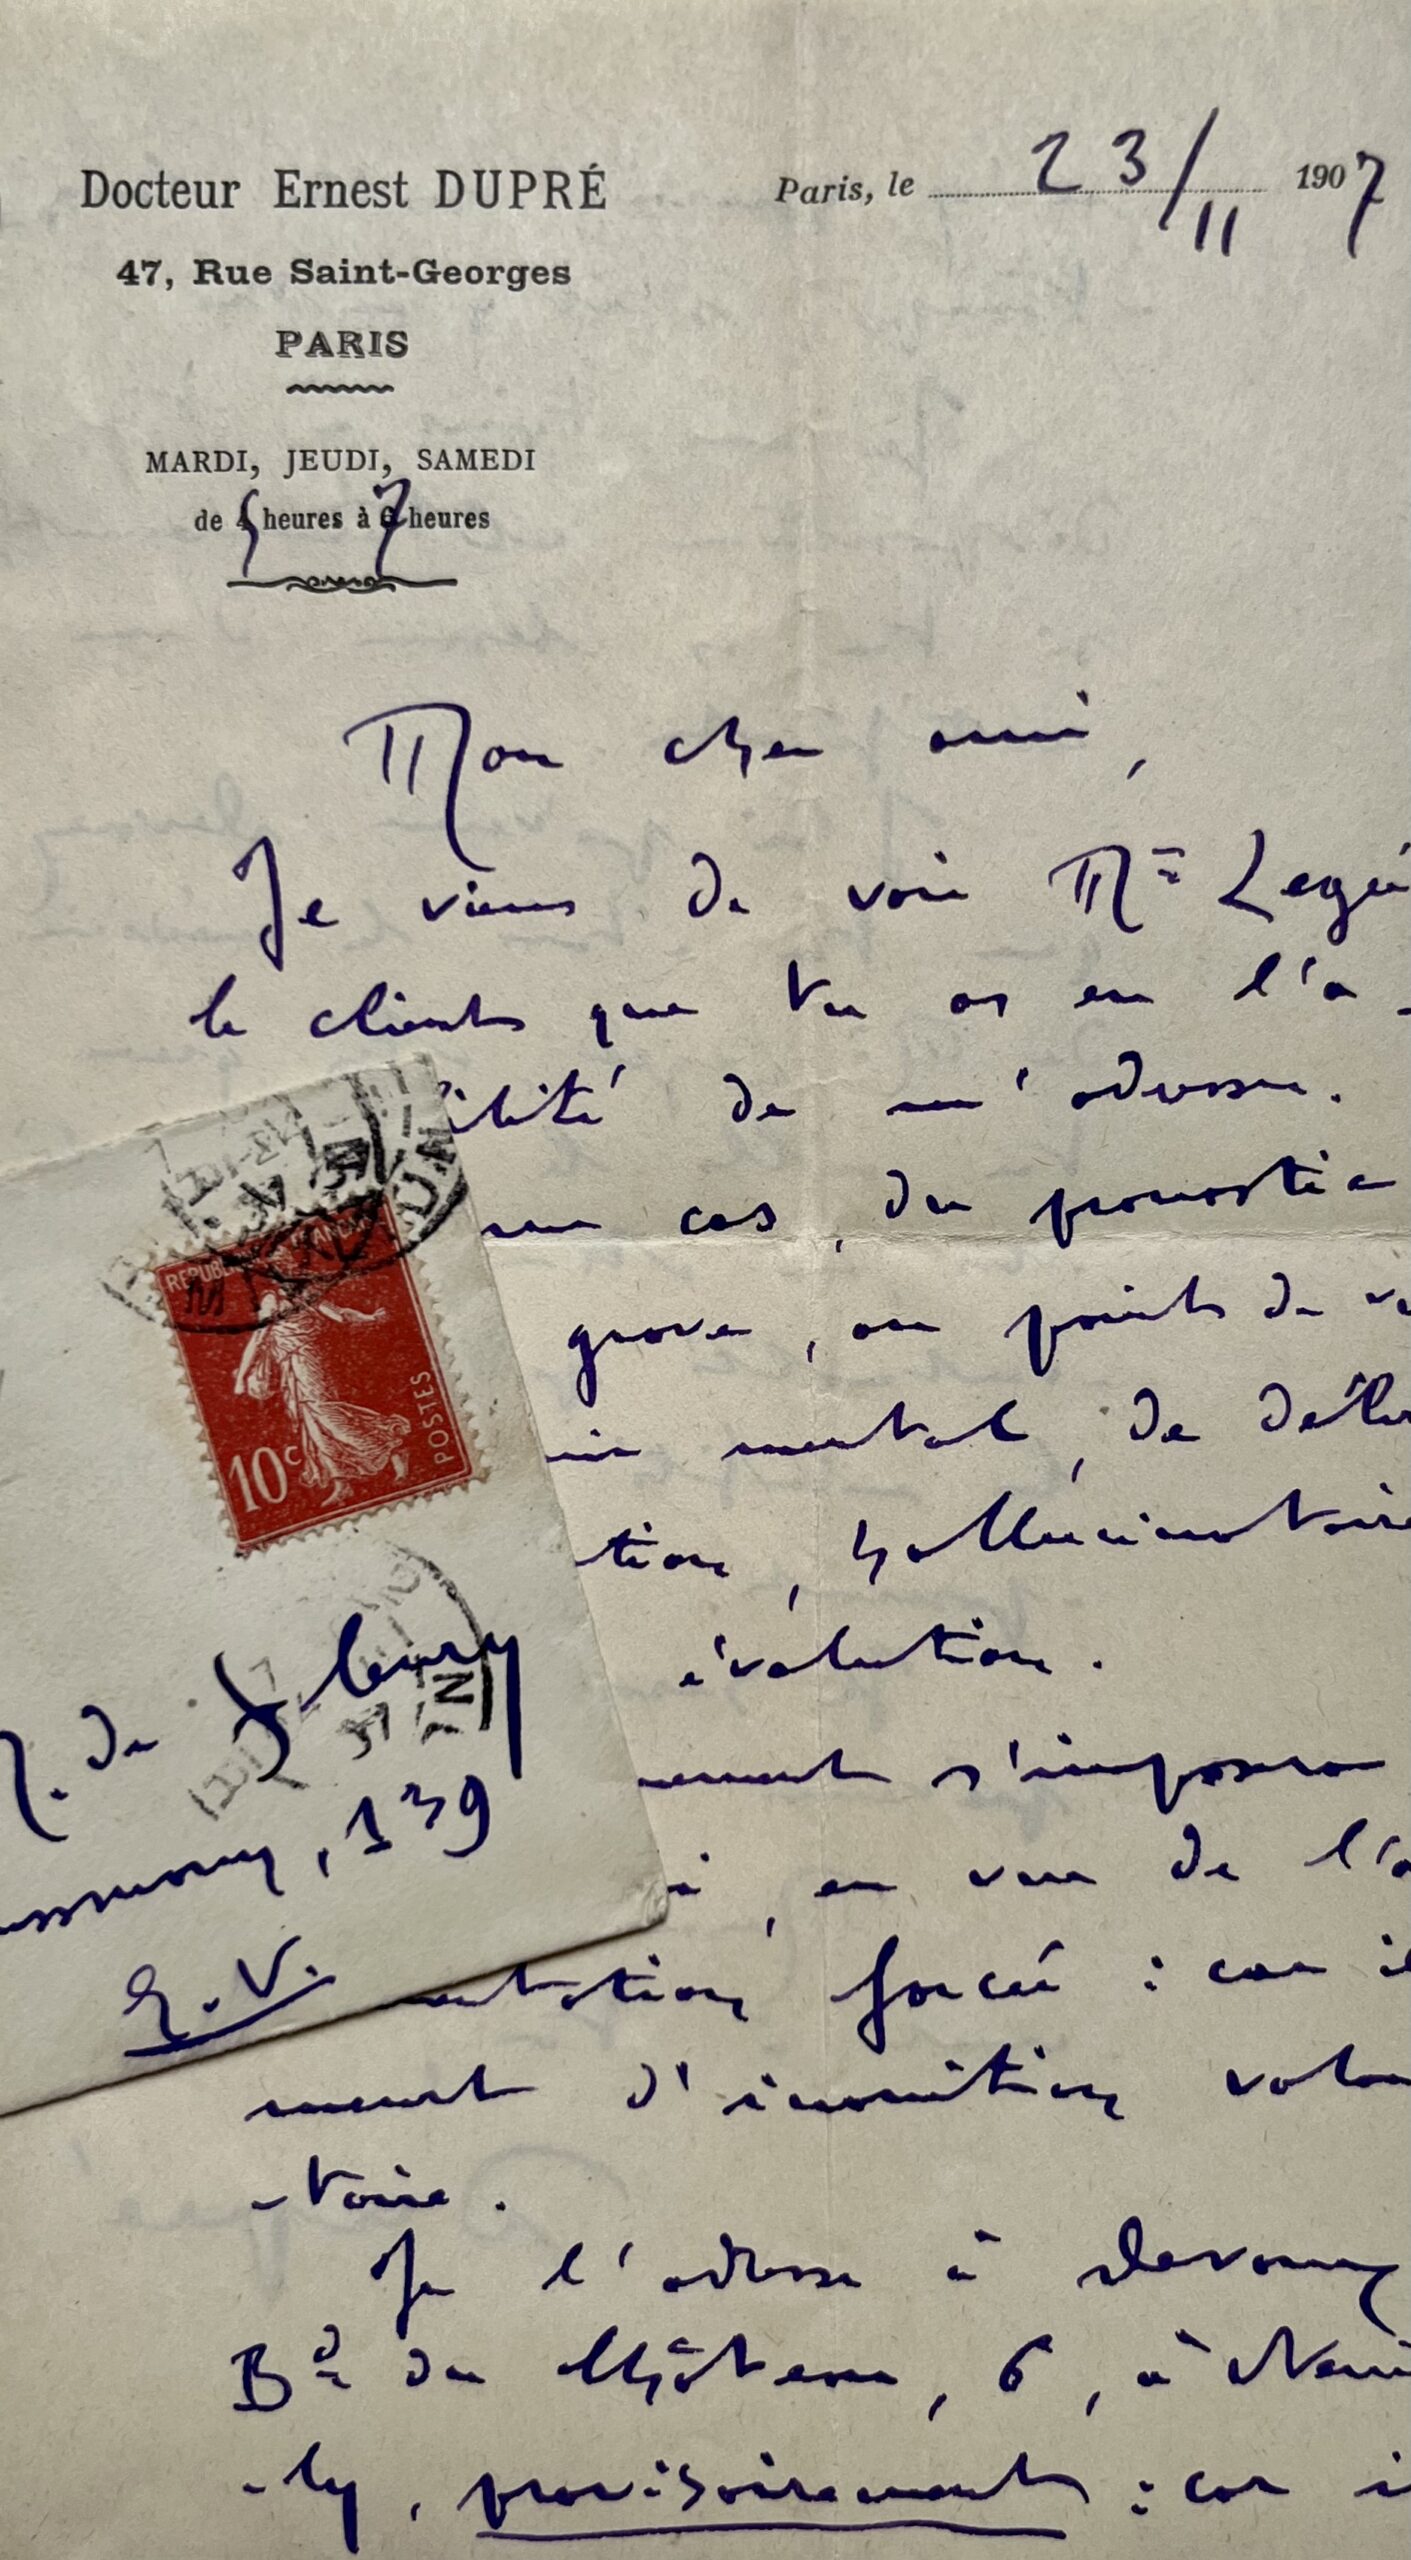 Docteur Ernest DUPRÉ
47, Rue Saint-Georges
PARIS
MARDI, JEUDI, SAMEDI
de 5 heures à 7 heures
Paris, le 23/11 1907
Mon cher ami,
Je viens de voir Mr
le client que tu as eu l'a-
ilité de m'adresser.
cas, du pronostic
grave, au point de
mental, de
tion, hallucinatoire
évolution.
nement s'imposera
, en vue de l'a
entation forcée : car il
meurt d'inanition volon
-taire.
Je l'adresse à
Bd du Château, 6, à Neui
-lly, provisoirement : car i
REPUBLIQUE FRANCAISE
10c
POSTES
de Fleury
, 139
E. V.